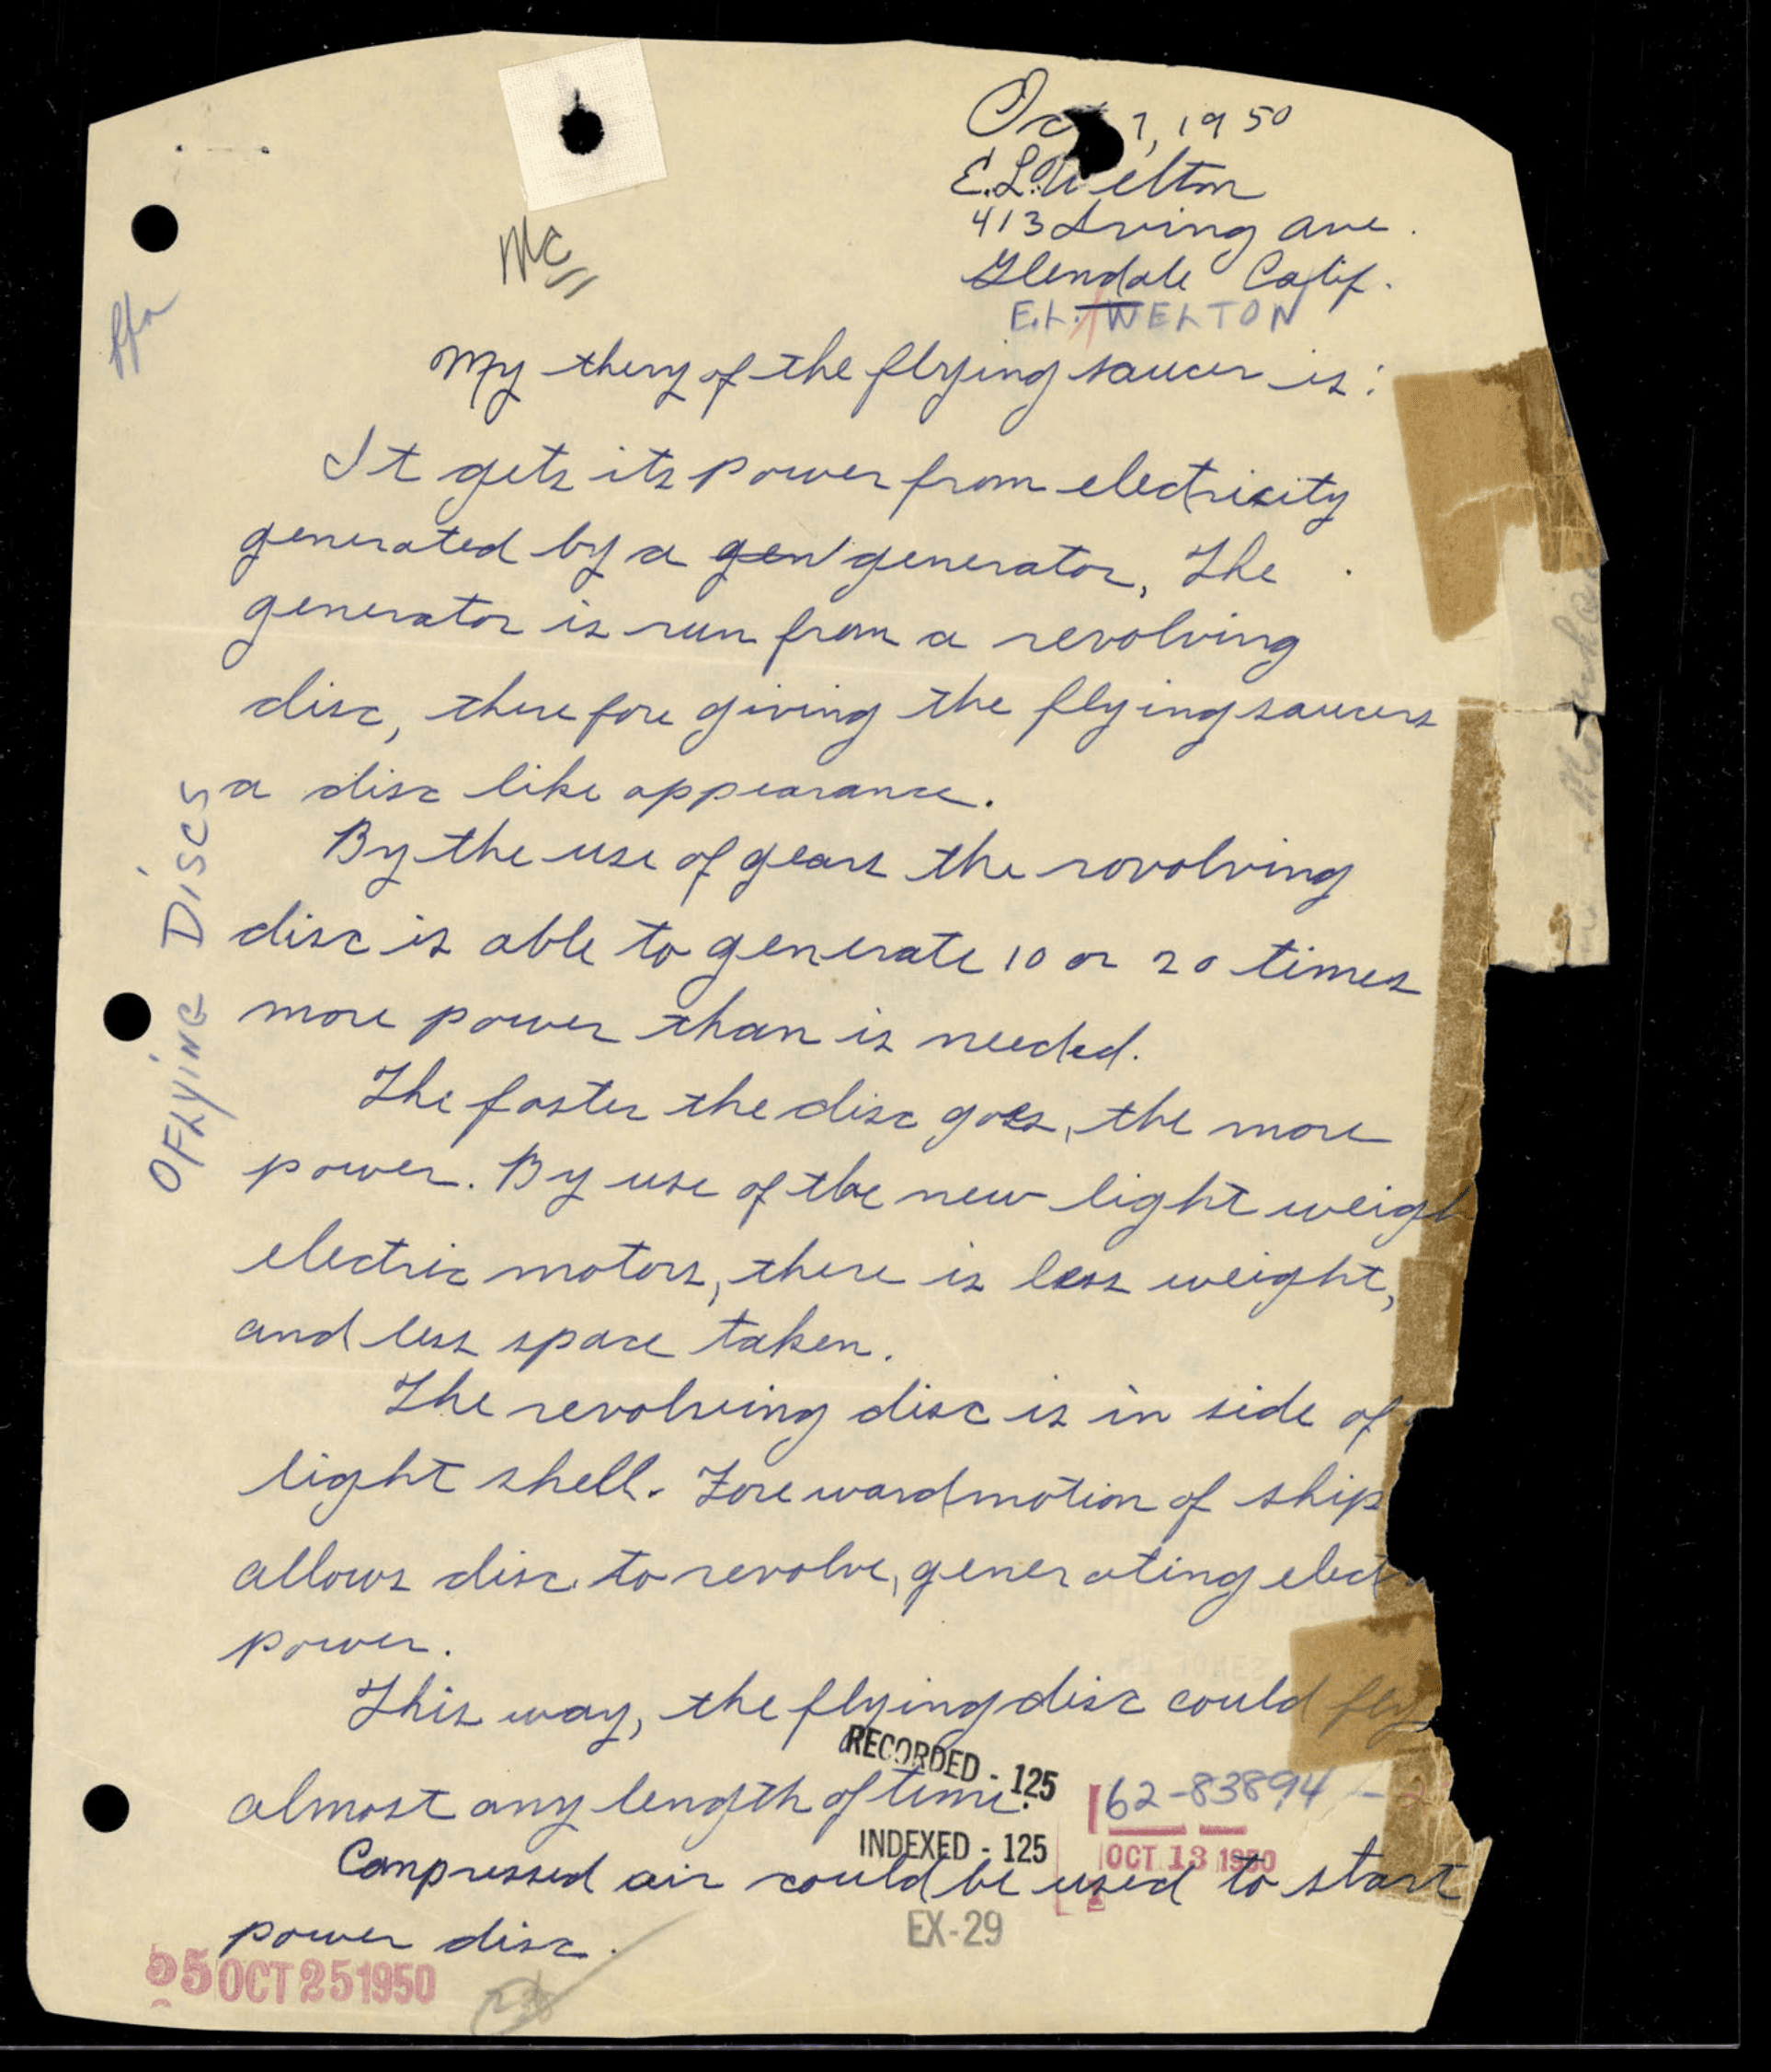 Oct 7, 1950
E.L. Welton
413 Irving Ave.
Glendale Calif.
Mc
E.L. WELTON
My thery of the flying saucer is:
It gets its power from electricity
generated by a gen generator, The
generator is run from a revolving
disc, therefore giving the flying saucers
a disc like appearance.
By the use of gears the rovolving
disc is able to generate 10 or 20 times
more power than is needed.
The faster the disc goes, the more
power. By use of the new light weigh
electric motors, there is less weight,
and less space taken.
The revolving disc is in side of
light shell. Foreward motion of ship
allows disc to revolve, generating elect
power.
This way, the flying disc could fly
almost any length of time.
Compressed air could be used to start
power disc.
OFLYiNG DiSCS
RECORDED - 125
INDEXED - 125
62-83894-
OCT 13 1950
EX-29
25 OCT 25 1950